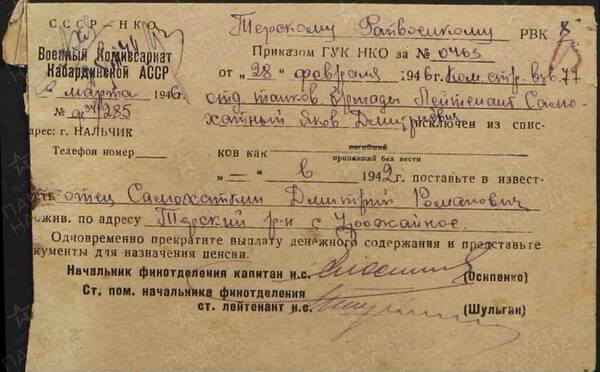 СССР – НКО
Военный Комиссариат
Кабардинской АССР
марта 1946г.
№ 4/285
Адрес: г. НАЛЬЧИК
Телефон номер
Терскому Райвоенкому РВК
Приказом ГУК НКО за № 0463
от „28“ февраля 1946г. Ком. стр. взв. 77
отд танков. бригады Лейтенант Само-
хатный Яков Дмитриевич исключен из спис-
ков как погибший
пропавший без вести
„ — “ в 1942 г. поставьте в извест-
ность отец Самохатный Дмитрий Романович
прожив. по адресу Терский р-н с Урожайное.
Одновременно прекратите выплату денежного содержания и представьте
документы для назначения пенсии.
Начальник финотделения капитан и.с. (Осипенко)
Ст. пом. начальника финотделения
ст. лейтенант и.с. (Шульгин)